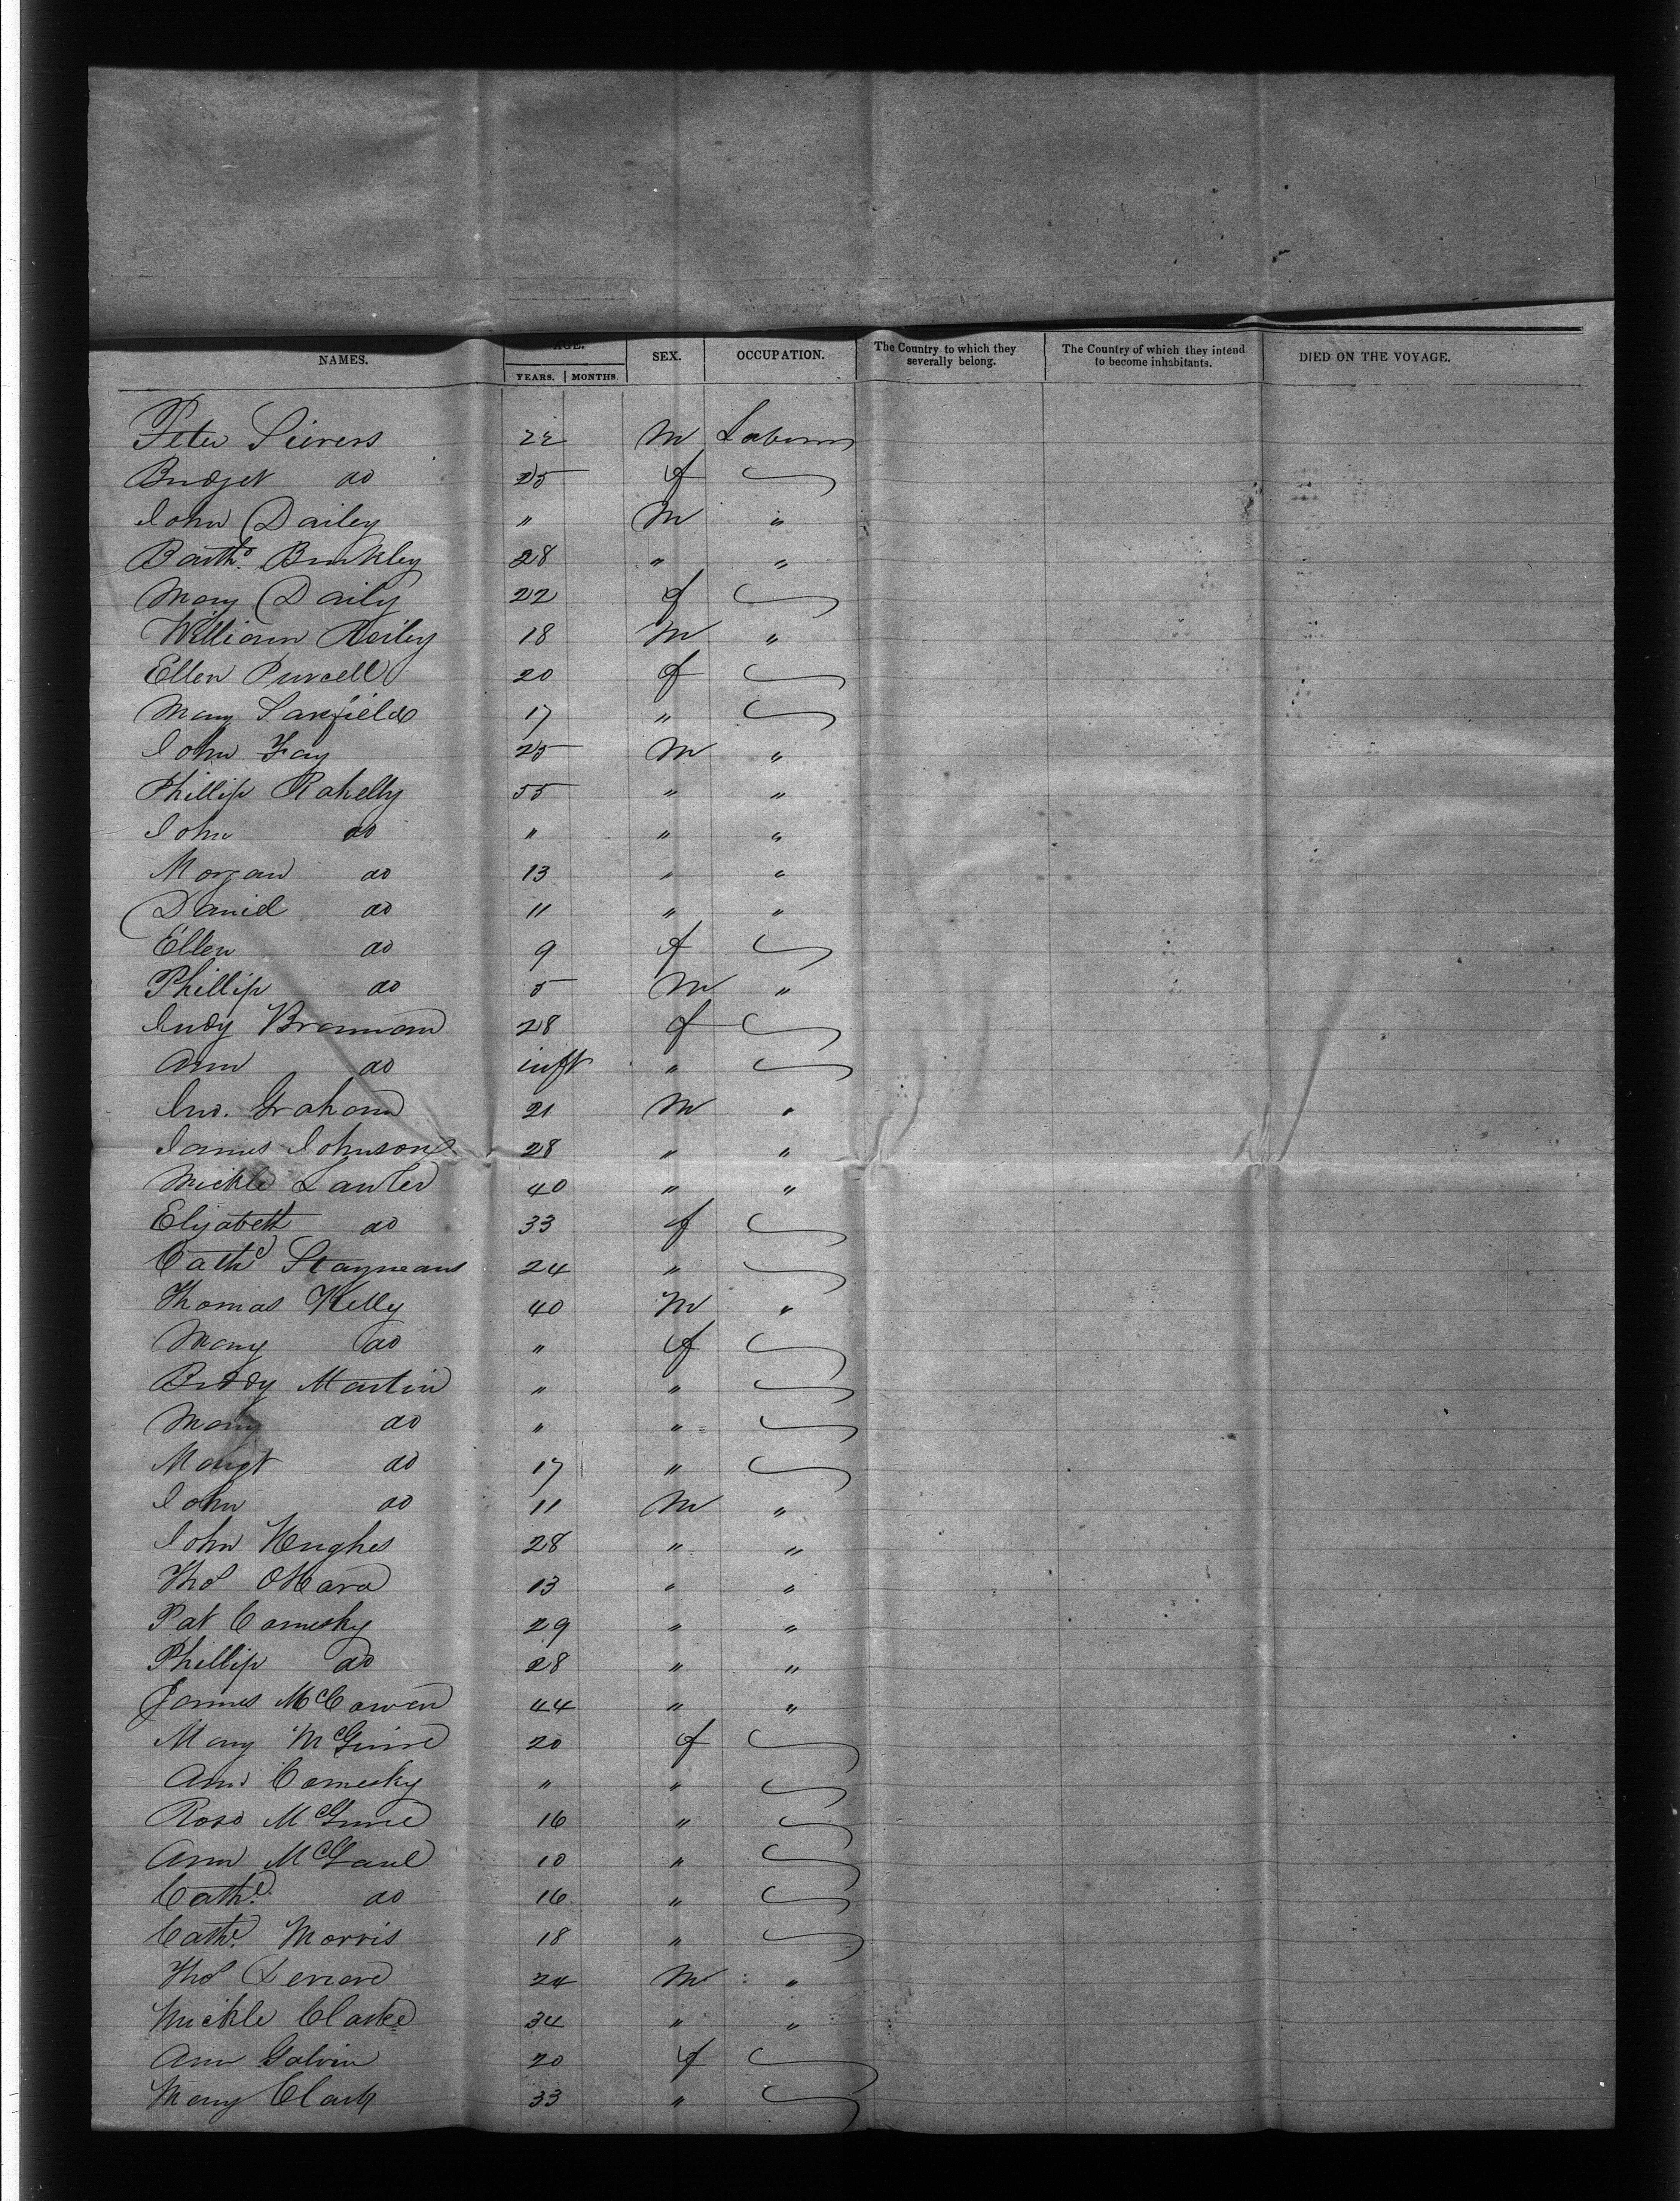 NAMES. AGE. SEX. OCCUPATION. The Country to which they severally belong. The Country of which they intend to become inhabitants. DIED ON THE VOYAGE.
YEARS. MONTHS.
Peter Sievers 22 M Laborer
Bridget do 25 f
John Dailey " M "
Barth.o Binkley 28 " "
Mary Daily 22 f
William Reiley 18 M "
Ellen Purcell 20 f
Mary Sarsfield 17 "
John Fay 25 M "
Phillip Rahelly 55 " "
John do " " "
Morgan do 13 " "
Daniel do 11 " "
Ellen do 9 f
Phillip do 5 M "
Judy Brannan 28 f
Ann do inft "
Jno. Graham 21 M "
James Johnson 28 " "
Mickle Lawler 40 " "
Elizabeth do 33 f
Cathe 24 "
Thomas Kelly 40 M "
Mary do " f
Biddy Martin " "
Mary do " "
Margt do 17 "
John do 11 M "
John Hughes 28 " "
Thos OHara 13 " "
Pat Comesky 29 " "
Phillip do 28 " "
James McCowen 44 " "
Mary McGuire 20 f
Ann Comesky " "
Rose McGuire 16 "
Ann McGaul 10 "
Cathe. do 16 "
Cathe. Morris 18 "
Thos 24 M "
Mickle Clarke 34 " "
Ann Galvin 20 f
Mary Clark 33 "